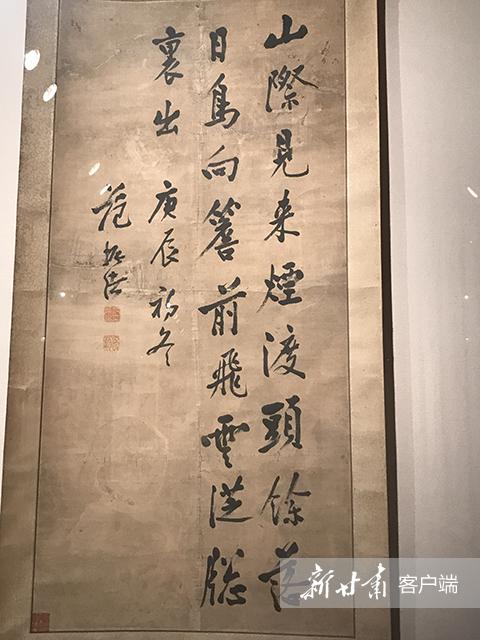 山際見来煙渡頭餘落
日鳥向簷前飛雲從牕
裏出 庚辰初冬
范振緒
新甘肃 客户端